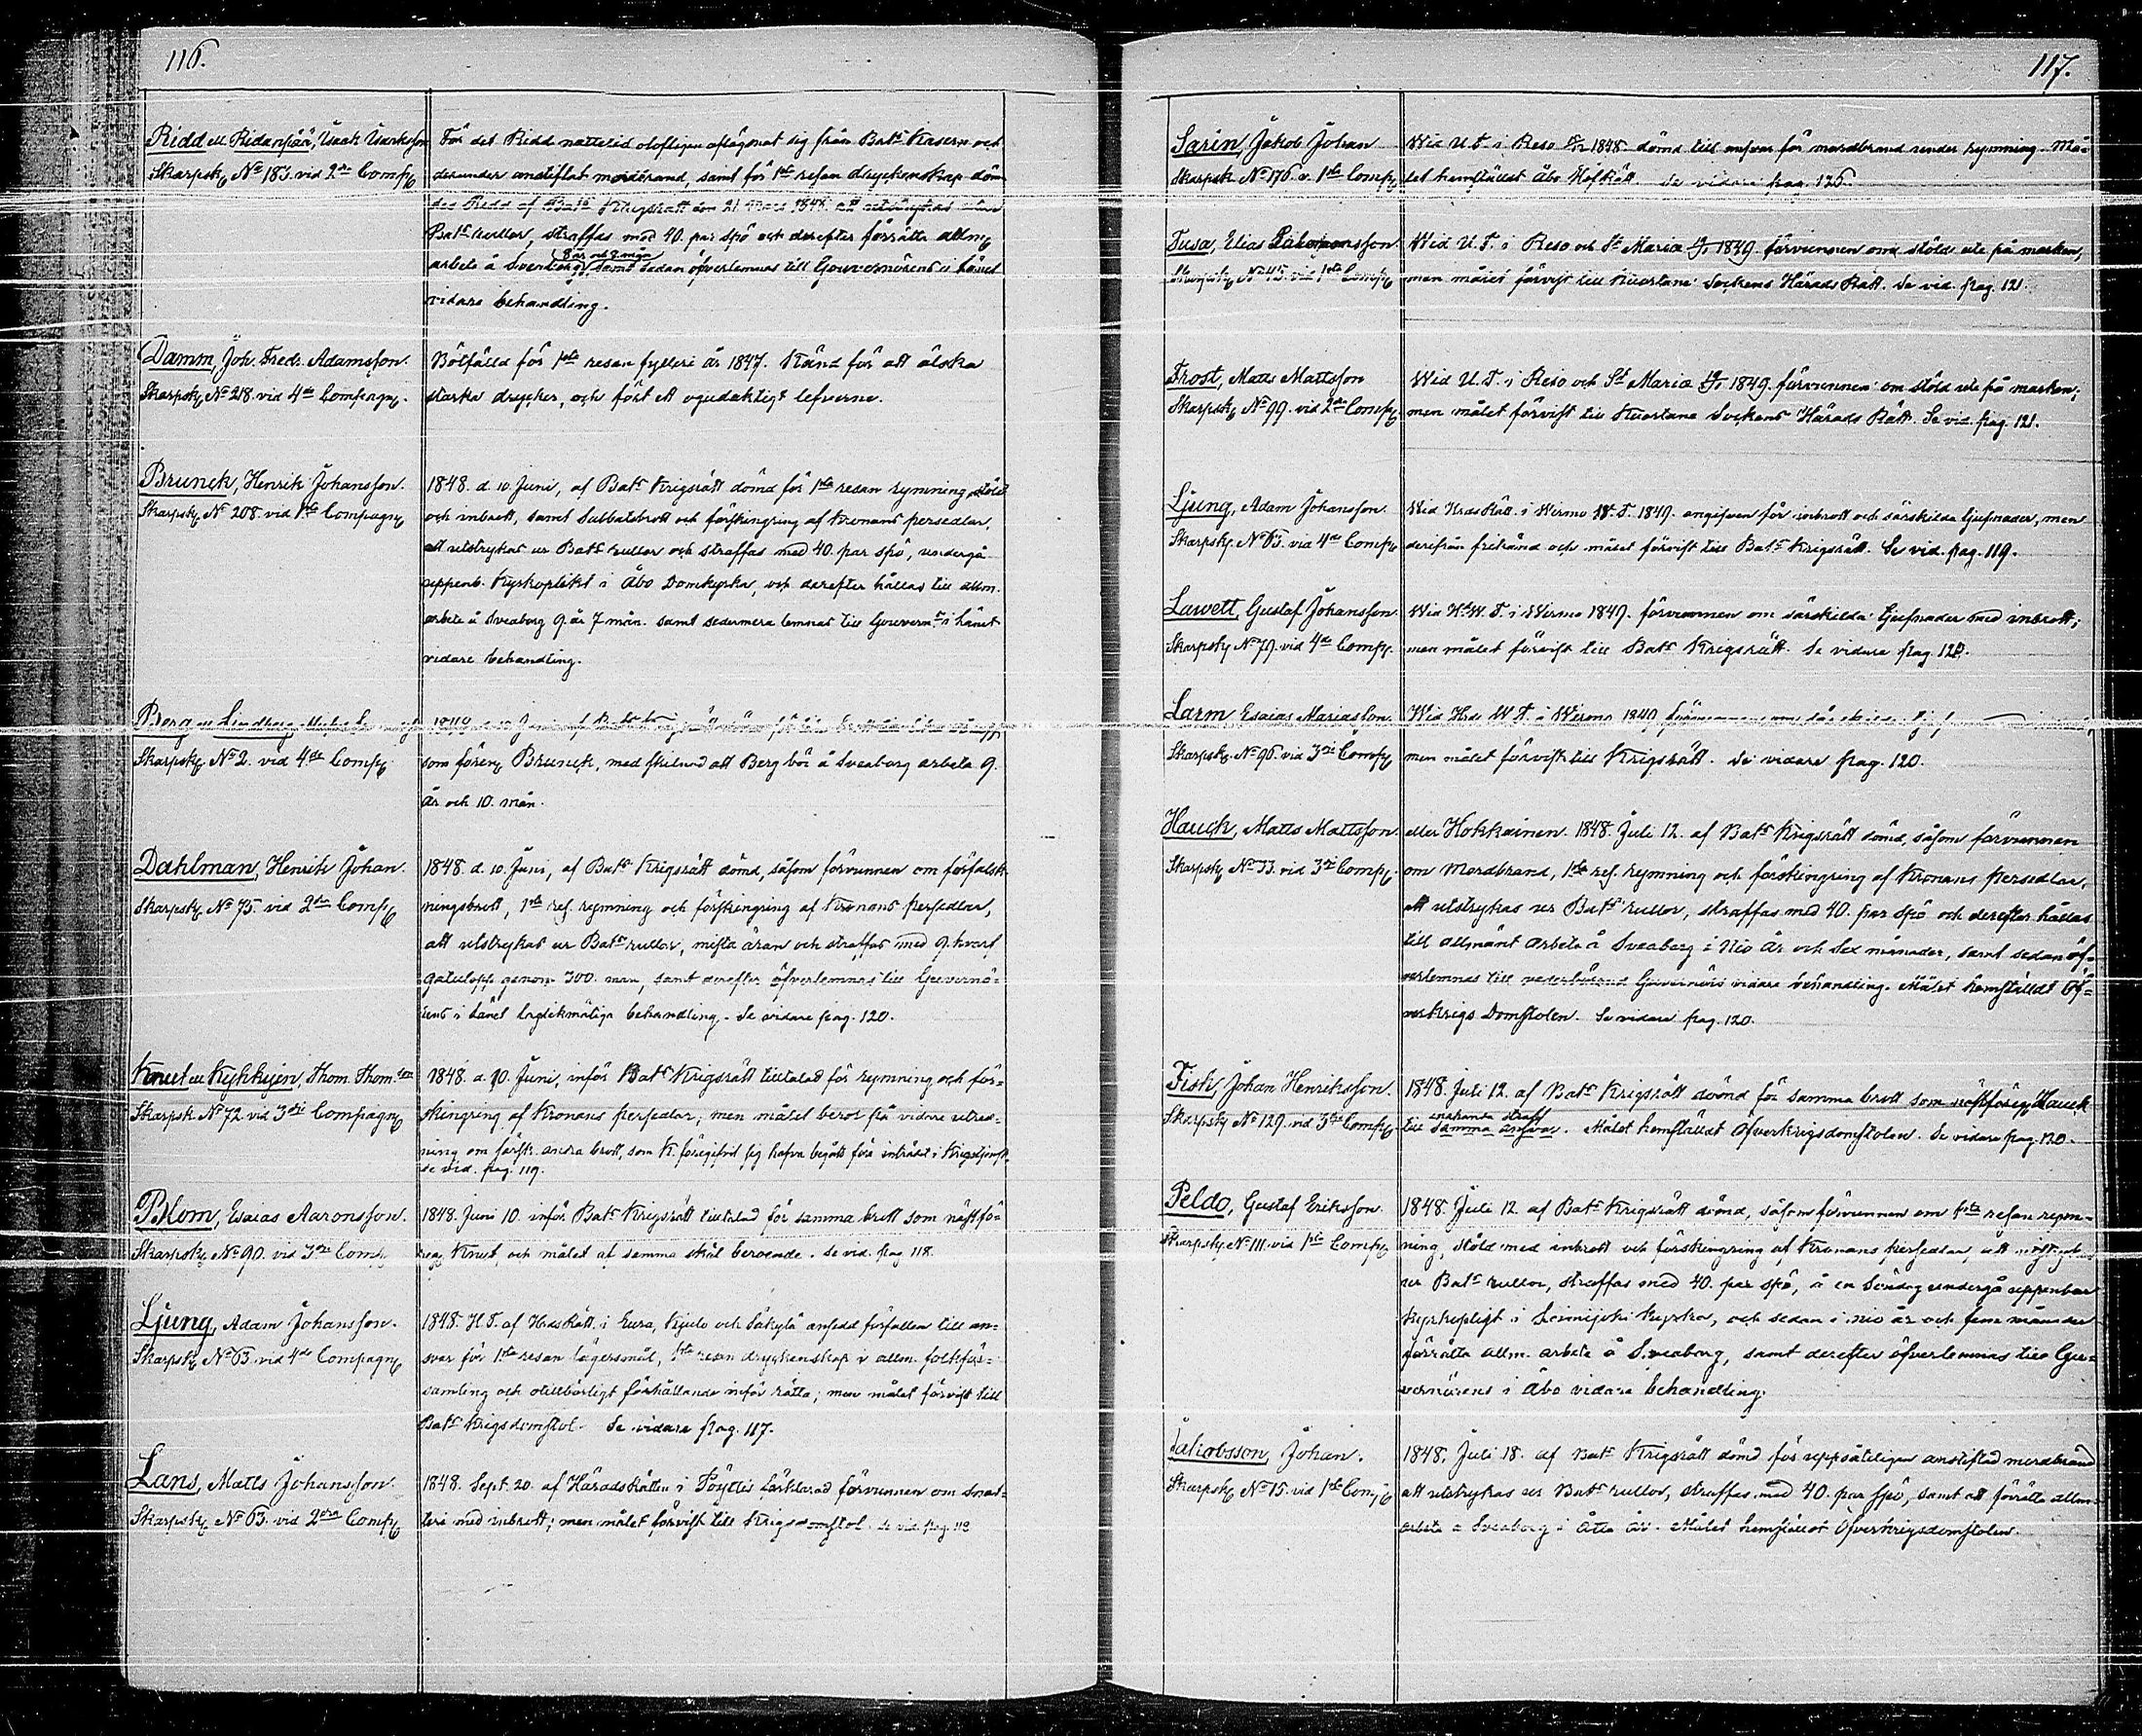 116.
Ridd ell Ridanpää, Isaak Isaksson
Skarpsk. No 183. vid 2dra Comp.
För det Ridd nattetid olofligen aflägsnat sig från Bats Kasern och
derunder anstiftat mordbrand, samt för 1sta resan dryckenskap döm-
des Ridd af Bats Krigsrätt den 21 Mars 1848. att utstrykas
Bats rullor, straffas med 40. par spö och derefter förrätta allm.
arbete å Sveaborg 8 år och 8 mån. samt sedan öfverlemnas till Gouvernörens i länet
vidare behandling.
Damm, Joh. Fredr. Adamsson.
Skarpsk. No 218. vid 4de Compagn.
Bötfälld för 1sta resan fylleri år 1847. Känd för att älska
starka drycker, och fört ett ogudaktigt lefverne.
Brunck, Henrik Johansson.
Skarpsk. No 208. vid 1sta Compagn.
1848. d. 10. Juni, af Bats Krigsrätt dömd för 1sta resan rymning, stöld
och inbrott, samt Sabbatsbrott och förskingring af Kronans persedlar,
att utstrykas ur Bats rullor och straffas med 40. par spö, undergå
uppenb. Kyrkoplikt i Åbo Domkyrka, och derefter hållas till allm.
arbete å Sveaborg 9. år 7 mån. samt sedermera lemnas till Gouvern:s i länet
vidare behandling.
Berg ell Lindberg,
Skarpsk. No 2. vid 4de Comp.
1848 d. 10 Juni af Bats
som föreg. Brunck, med skilnad att Berg bör å Sveaborg arbeta 9.
år och 10. mån.
Dahlman, Henrik Johan.
Skarpsk. No 75. vid 2dra Comp.
1848. d. 10. Juni, af Bats Krigsrätt dömd, såsom förvunnen om förfalsk-
ningsbrott, 1sta res. rymning och förskingring af Kronans persedlar,
att utstrykas ur Bats rullor, mista äran och straffas med 9. hvarf
gatulopp genom 300. man, samt derefter öfverlemnas till Guvernö-
rens i länet laglikmätiga behandling. Se vidare pag. 120.
Knut ell Kykkyjen, Thom. Thom.son
Skarpsk. No 72. vid 3dje Compagn.
1848. d. 10. Juni, inför Bats Krigsrätt tilltalad för rymning och för-
skingring af Kronans persedlar; men målet beror på vidare utred-
ning om särsk. andra brott, som K. föregifvit sig hafva begått före inträdet i Krigstjenst.
Se vid. pag. 119.
Blom, Esaias Aaronsson.
Skarpsk. No 90. vid 3dje Comp.
1848. Juni 10. inför Bats Krigsrätt tilltalad för samma brott som nästfö-
reg. Knut, och målet af samma skäl beroende. Se vid. pag 118.
Ljung, Adam Johansson.
Skarpsk. No 63. vid 4de Compagn.
1848. H.T. af HdsRätt. i Eura, Kjulo och Säkylä ansedd förfallen till an-
svar för 1sta resan lägersmål, 1sta resan dryckenskap i allm. folkför-
samling och otillbörligt förhållande inför rätta; men målet förvist till
Bats Krigsdomstol. Se vidare pag. 117.
Lans, Matts Johansson.
Skarpsk. No 63. vid 2dra Comp.
1848. Sept. 20. af Häradsrätten i Pöyttis förklarad förvunnen om snat-
teri med inbrott; men målet förvist till Krigsdomstol. Se vid. pag. 118
117.
Sarin, Jakob Johan
Skarpsk. No 176. v. 1sta Comp.
Wid U.T. i Reso 1848. dömd till ansvar för mordbrand under rymning. Må-
let hemställdt Åbo HofRätt. Se vidare pag. 126.
Tusa, Elias
Skarpsk. No 45. vid 1sta Comp.
Wid U.T. i Reso och St Mariæ 1849. förvunnen om stöld ute på marken,
men målet förvist till Kuortane Sockens HäradsRätt. Se vid. pag. 121.
Frost, Matts Mattsson
Skarpsk. No 99. vid 2dra Comp.
Wid U.T. i Reso och St Mariæ 1849. förvunnen om stöld ute på marken;
men målet förvist till Kuortane Sockens Härads Rätt. Se vid. pag. 121.
Ljung, Adam Johansson.
Skarpsk. No 63. vid 4de Comp.
Wid HrdsRätt. i Wirmo V.T. 1849. angifven för inbrott och särskilda tjufnader, men
derifrån frikänd och målet förvist till Bats Krigsrätt. Se vid. pag. 119.
Lawett, Gustaf Johansson.
Skarpsk. No 79. vid 4de Comp.
Wid Hds W.T. i Wirmo 1849. förvunnen om särskilda tjufnader med inbrott;
men målet förvist till Bats Krigsrätt. Se vidare pag 120.
Larm Esaias Mariasson.
Skarpsk. No 96. vid 3dje Comp.
Wid Hrds W.T. i Wirmo 1849 förvunnen om särskilda
men målet förvist till Krigsrätt. Se vidare pag. 120.
Hauck, Matts Mattsson.
Skarpsk. No 33. vid 3dje Comp.
eller Hokkainen. 1848. Juli 12. af Bats Krigsrätt dömd, såsom förvunnen
om Mordbrand, 1sta res. rymning och förskingring af Kronans persedlar,
att utstrykas ur Bats rullor, straffas med 40. par spö och derefter hållas
till allmänt arbete å Sveaborg i Nio år och Sex månader, samt sedan öf-
verlemnas till vederbörand Guvernörs vidare behandling. Målet hemställdt Öf-
verkrigs Domstolen. Se vidare pag. 120.
Fisk, Johan Henriksson.
Skarpsk. No 129. vid 3dje Comp.
1848. Juli 12. af Bats Krigsrätt dömd för samma brott som nästföreg. Hauck
till enahanda straff samma ansvar. Målet hemställdt Öfverkrigsdomstolen. Se vidare pag. 120.
Peldo, Gustaf Eriksson.
Skarpsk. No 111. vid 1sta Comp.
1848. Juli 12. af Bats Krigsrätt dömd, såsom förvunnen om 1sta resan rym-
ning, stöld med inbrott och förskingring af Kronans persedlar, att utstrykas
ur Bats rullor, straffas med 40. par spö, å en Söndag undergå uppenbar
kyrkopligt i kyrka, och sedan i nio år och fem månader
förrätta allm. arbete å Sveaborg, samt derefter öfverlemnas till Gu-
vernörens i Åbo vidare behandling.
Jakobsson, Johan.
Skarpsk. No 15. vid 1sta Comp.
1848. Juli 18. af Bats Krigsrätt dömd för uppsåteligen anstiftad mordbrand
att utstrykas ur Bats rullor, straffas med 40. par spö, samt att förrätta allm.
arbete å Sveaborg i åtta år. Målet hemställdt Öfverkrigsdomstolen.